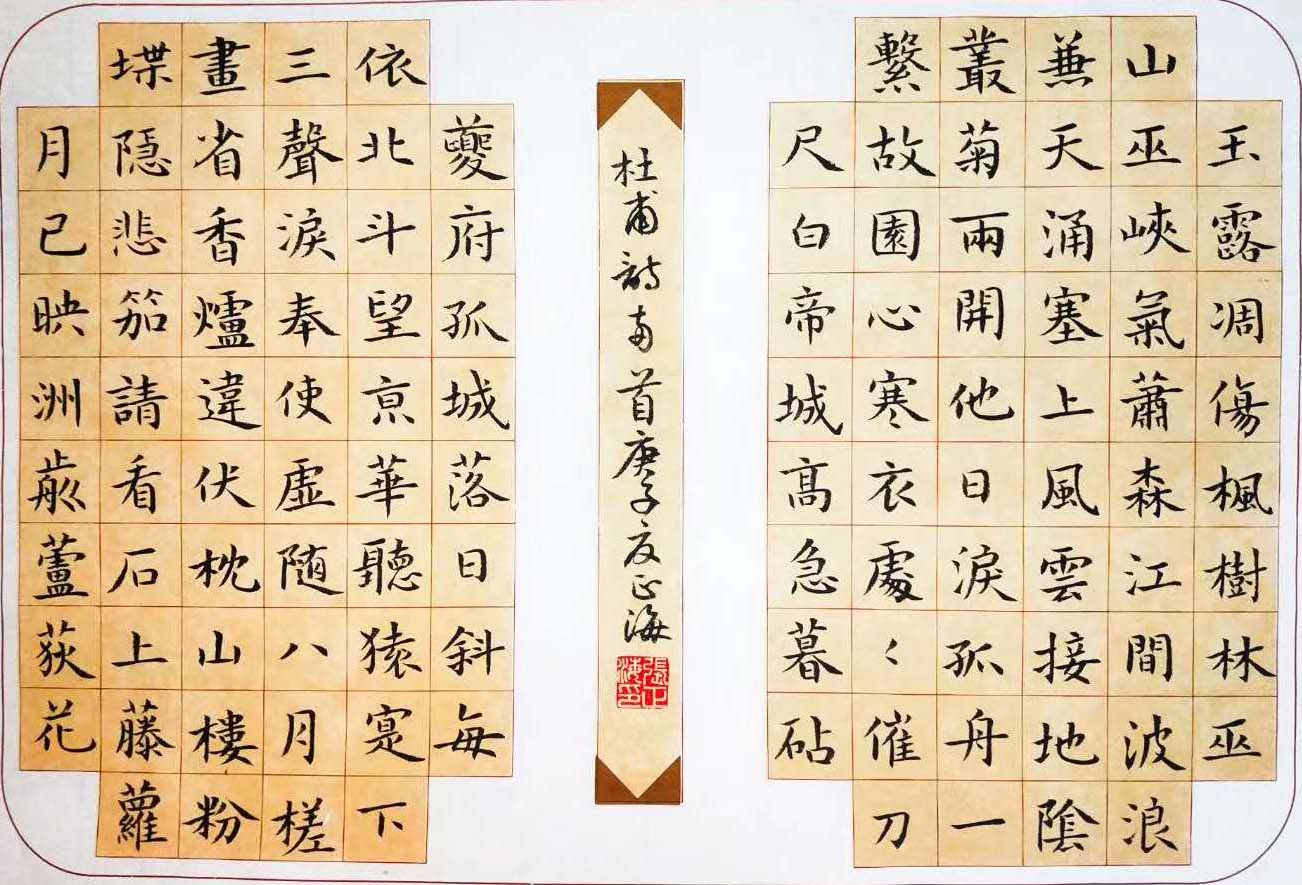 玉露凋傷楓樹林巫
山巫峽氣蕭森江間波浪
兼天涌塞上風雲接地陰
叢菊兩開他日淚孤舟一
繫故園心寒衣處〻催刀
尺白帝城髙急暮砧
杜甫詩兩首庚子夏正海
張正海印
夔府孤城落日斜每
依北斗望亰華聽猿寔下
三聲淚奉使虛随八月槎
畫省香爐違伏枕山樓粉
堞隱悲笳請看石上藤蘿
月已映洲前蘆荻花